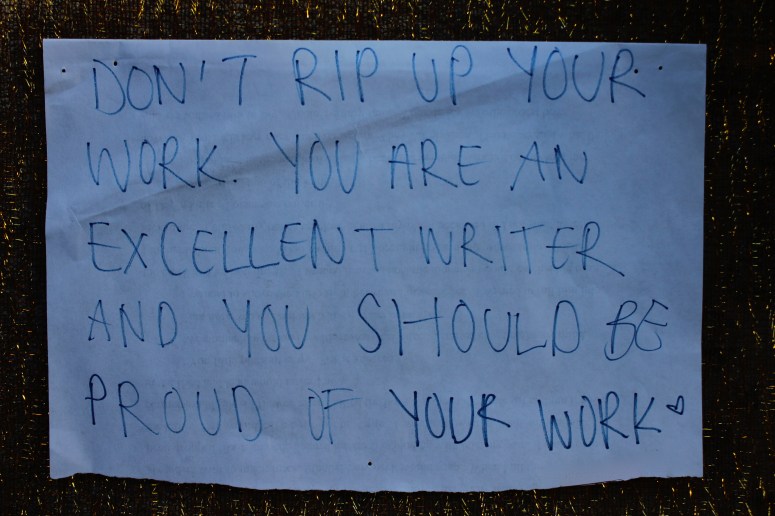 DON'T RIP UP YOUR
WORK. YOU ARE AN
EXCELLENT WRITER
AND YOU SHOULD BE
PROUD OF YOUR WORK♡